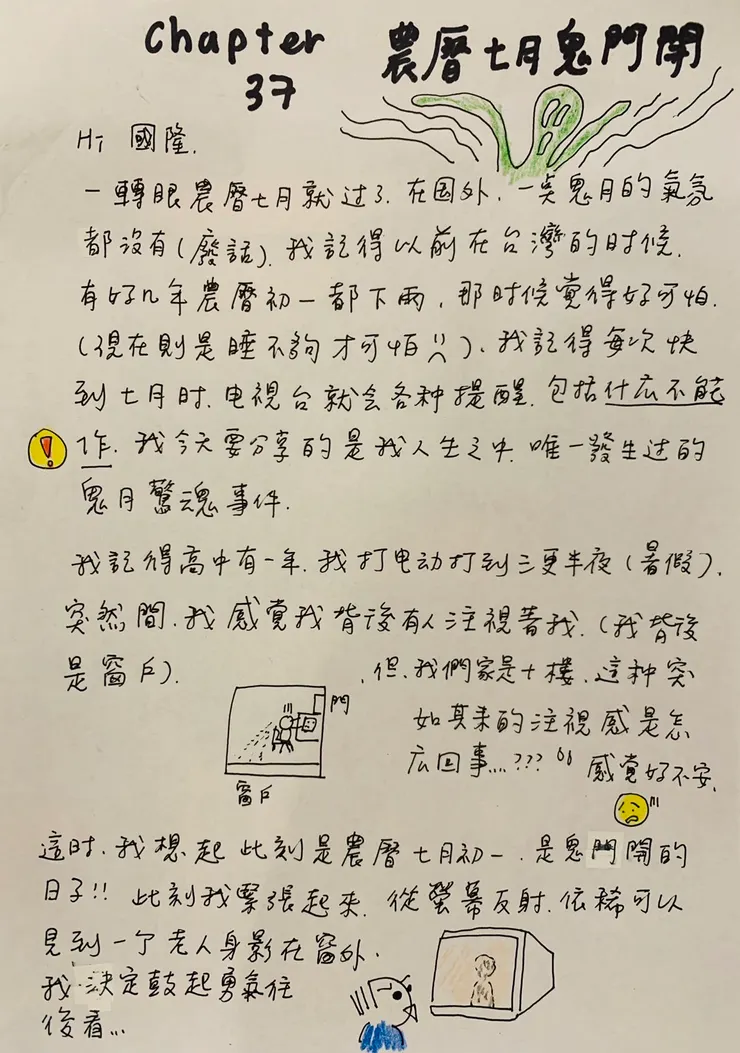 Chapter 37
農曆七月鬼門開
Hi 國隆,
一轉眼農曆七月就过了. 在国外, 一点鬼月的氣氛
都沒有(廢話). 我記得以前在台灣的时候,
有好几年農曆初一都下雨, 那时候覚得好可怕.
(現在則是睡不夠才可怕). 我記得每次快
到七月时, 电視台就会各种提醒, 包括什広不能
作. 我今天要分享的是我人生之中, 唯一發生过的
鬼月驚魂事件.
我記得高中有一年, 我打电动打到三更半夜(暑假),
突然間, 我感覚我背後有人注視著我. (我背後
是窗戶).
, 但, 我們家是十樓, 這种突
如其來的注視感是怎
広回事...??? 感覚好不安.
門
窗戶
這时, 我想起此刻是農曆七月初一, 是鬼門開的
日子!! 此刻我緊張起來, 從螢幕反射, 依稀可以
見到一个老人身影在窗外.
我決定鼓起勇氣往
後看...